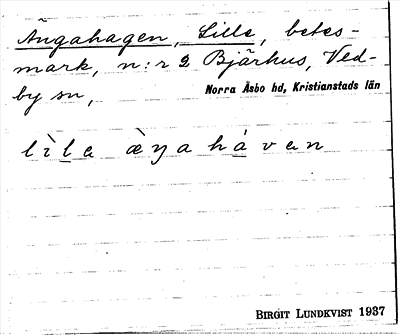 Ängahagen, Lille, betes-
mark, n:r 2 Bjärhus, Ved-
by sn,
Norra Åsbo hd, Kristianstads län
lìla æ̀ŋahàvan
BIRGIT LUNDKVIST 1937